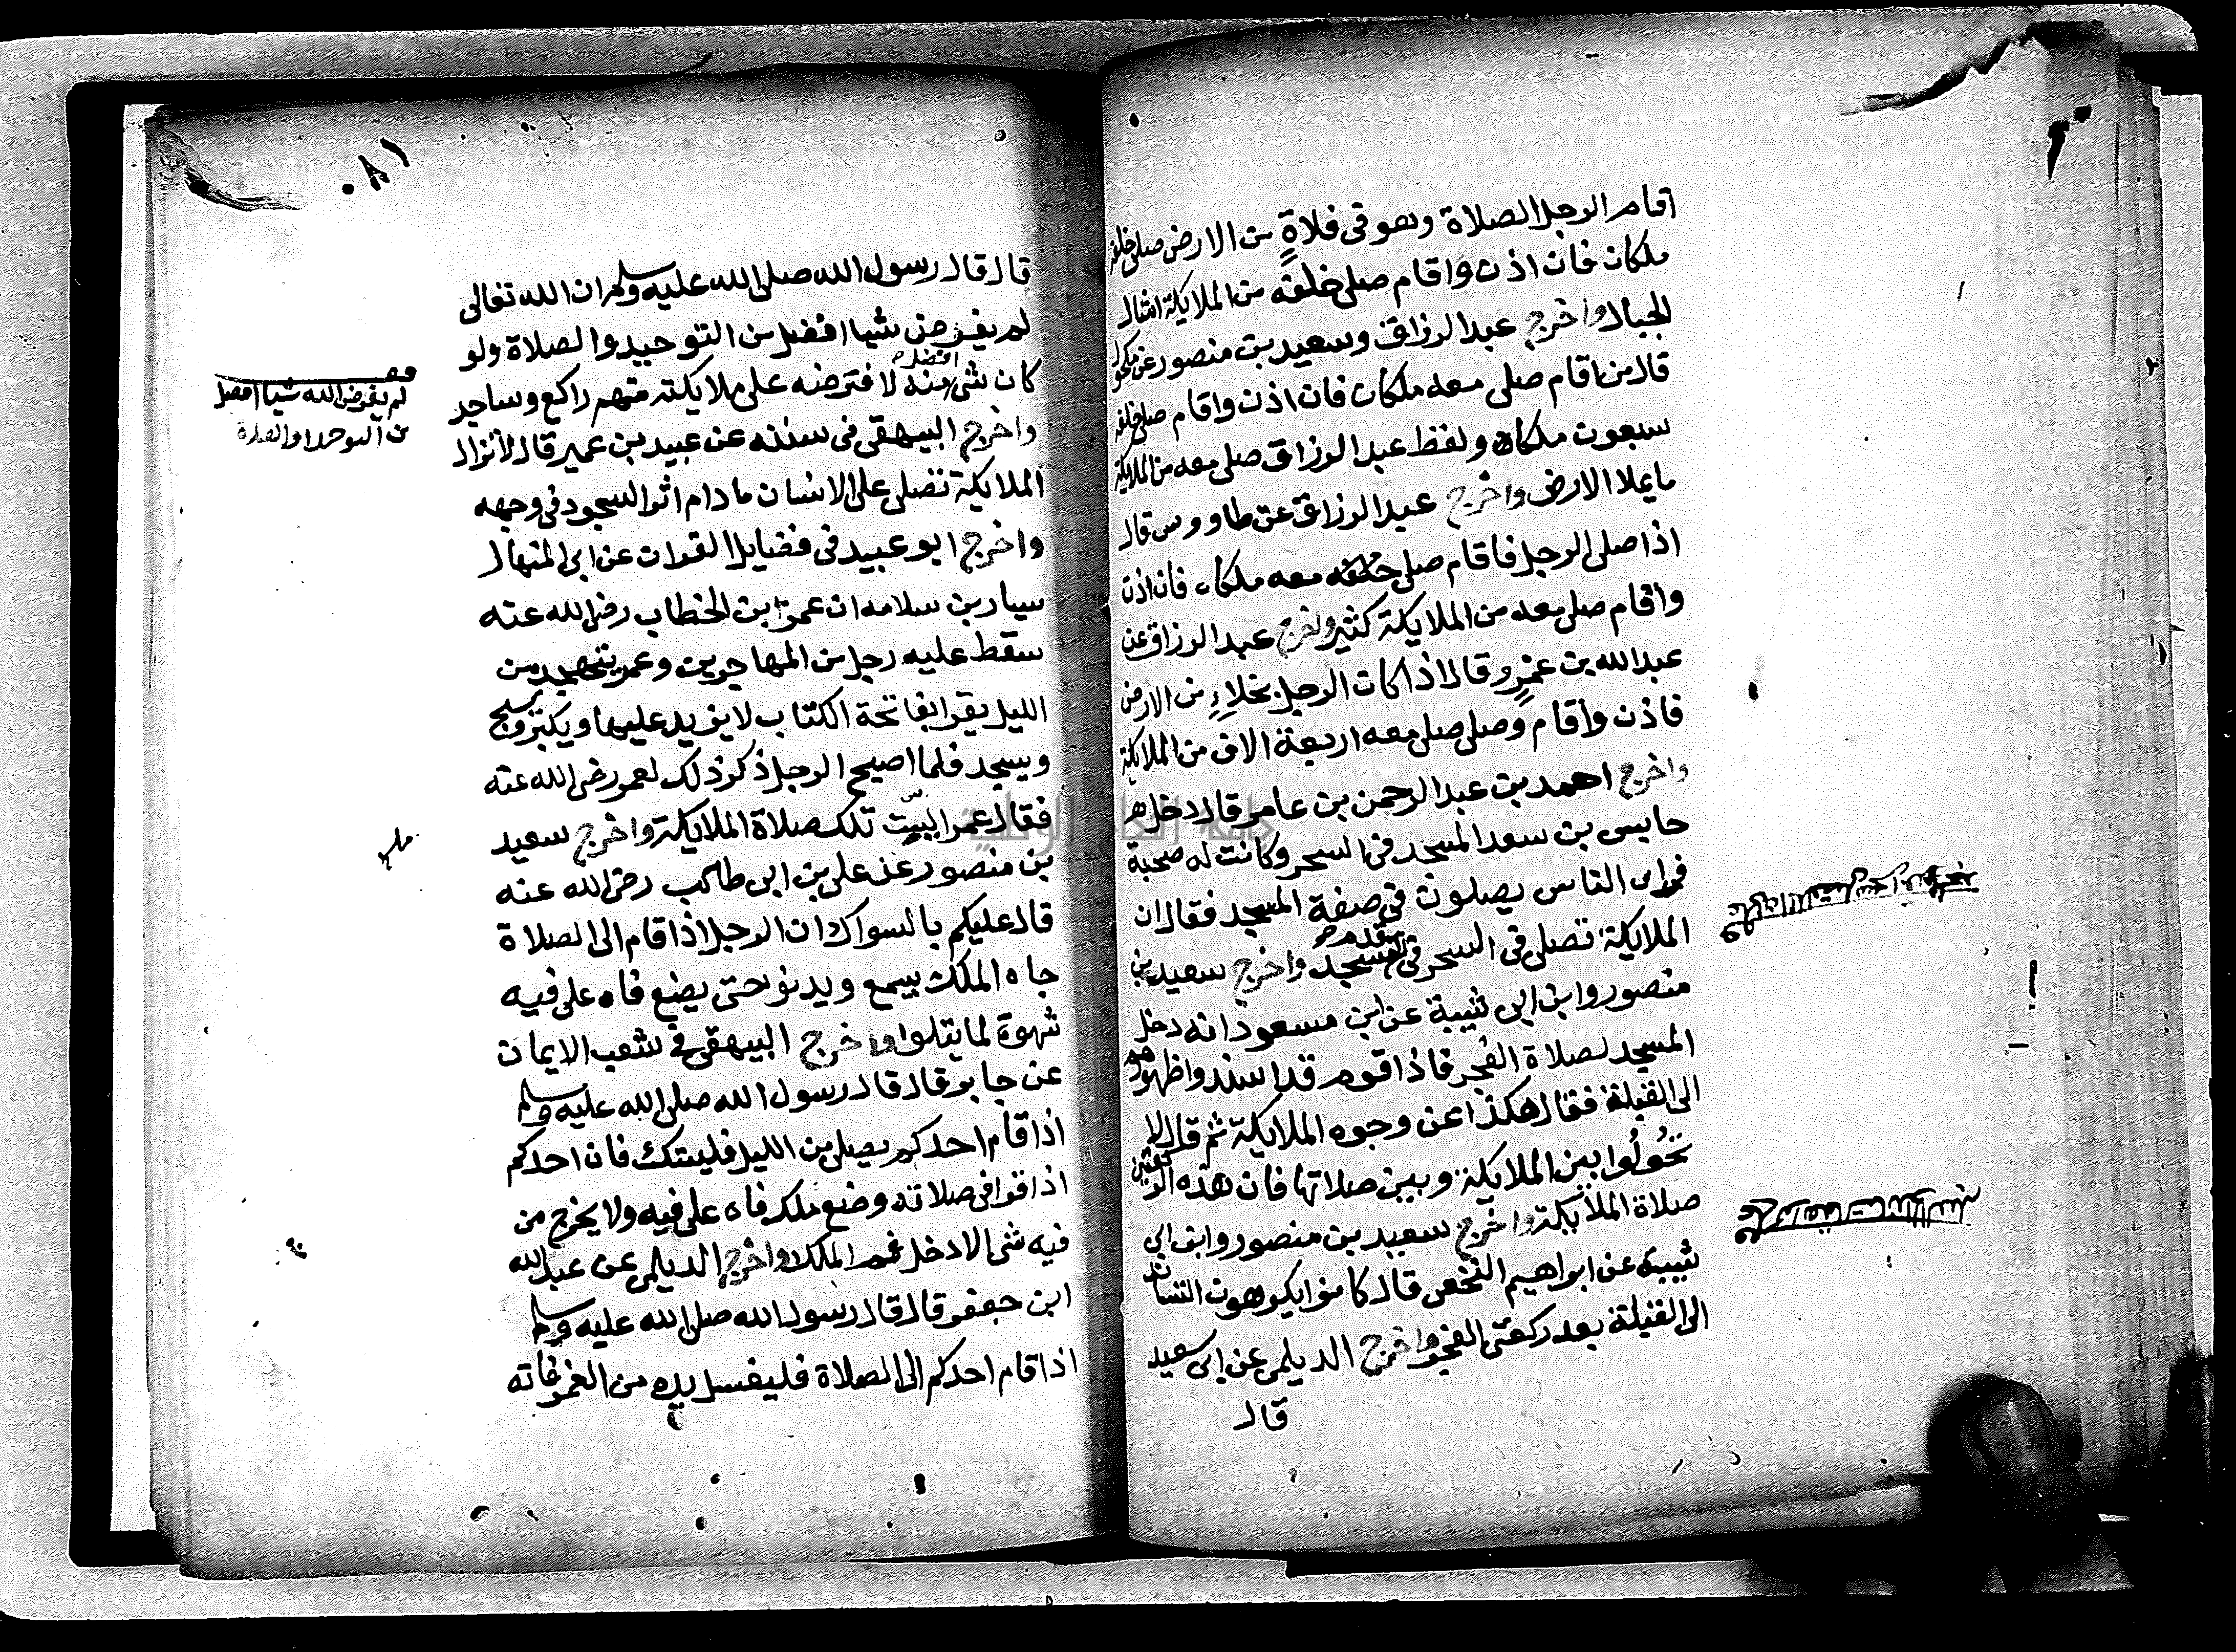 اقام الرجل الصلاة وهو في فلاةٍ من الارض صلى خلفه
ملكان فان اذن واقام صلى خلفه من الملايكة امثال
الجبال واخرج عبد الرزاق وسعيد بن منصور عن مكحول
قال من اقام صلى معه ملكان فان اذن واقام صلى خلفه
سبعون ملكا ولفظ عبد الرزاق صلى معه من الملايكة
ما يملا الارض واخرج عبد الرزاق عن طاووس قال
اذا صلى الرجل فاقام صلى معه ملكان فان اذن
واقام صلى معه من الملايكة كثير واخرج عبد الرزاق عن
عبد الله بن عمرو قال اذا كان الرجل بخلاءٍ من الارض
فاذن واقام وصلى صلى معه اربعة الاف من الملايكة
واخرج احمد بن عبد الرحمن بن عامر قال دخل
حابس بن سعد المسجد في السحر وكانت له صحبة
فراى الناس يصلون في صفة المسجد فقال ان
الملايكة تصلى في السحر في مقدم المسجد واخرج سعيد بن
منصور وابن ابي شيبة عن ابن مسعود انه دخل
المسجد لصلاة الفجر فاذا قوم قد اسندوا ظهورهم
الى القبلة فقال هكذا عن وجوه الملايكة ثم قال لا
تَحُولُوا بين الملايكة وبين صلاتها فان هذه الركعتين
صلاة الملايكة واخرج سعيد بن منصور وابن ابي
شيبة عن ابراهيم النخعي قال كانوا يكرهون التساند
الى القبلة بعد ركعتي الفجر واخرج الديلمي عن ابي سعيد
قال
٨١
قال قال رسول الله صلى الله عليه وسلم ان الله تعالى
لم يفرض شيا افضل من التوحيد والصلاة ولو
كان شي افضل منه لافترضه على ملايكته منهم راكع وساجد
واخرج البيهقي في سننه عن عبيد بن عمير قال لا تزال
الملايكة تصلى على الانسان ما دام اثر السجود في وجهه
واخرج ابو عبيد في فضايل القران عن ابي المنهال
سيار بن سلامه ان عمر ابن الخطاب رضي الله عنه
سقط عليه رجل من المهاجرين وعمر يتهجد من
الليل يقرا بفاتحة الكتاب لا يزيد عليها ويكبر ويسبح
ويسجد فلما اصبح الرجل ذكر ذلك لعمر رضي الله عنه
فقال عمر اليست تلك صلاة الملايكة واخرج سعيد
بن منصور عن على بن ابي طالب رضي الله عنه
قال عليكم بالسواك ان الرجل اذا قام الى الصلاة
جاه الملك يسمع ويدنو حتى يضع فاه على فيه
شهوة لما يتلوا واخرج البيهقي في شعب الايمان
عن جابر قال قال رسول الله صلى الله عليه وسلم
اذا قام احدكم يصلى من الليل فليستك فان احدكم
اذا قرا في صلاته وضع ملك فاه على فيه ولا يخرج من
فيه شي الا دخل فم الملك واخرج الديلمي عن عبد الله
ابن جعفر قال قال رسول الله صلى الله عليه وسلم
اذا قام احدكم الى الصلاة فليغسل يده من الغمر فانه
لم يفرض الله شيا افضل
من التوحيد والصلاة